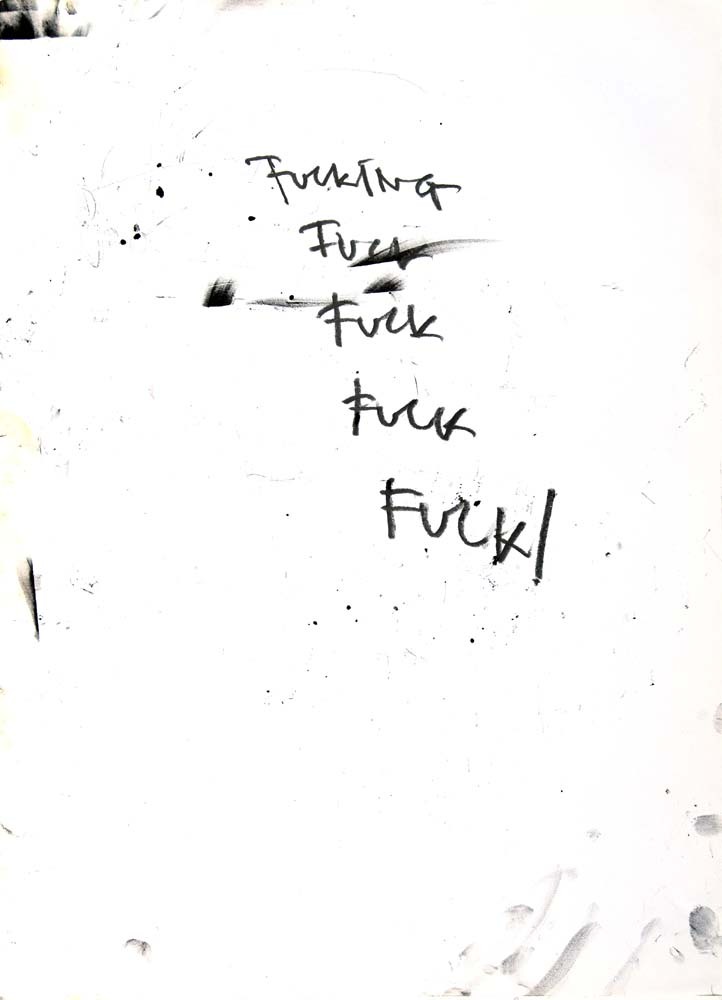 FUCKING
FUCK
FUCK
FUCK
FUCK!